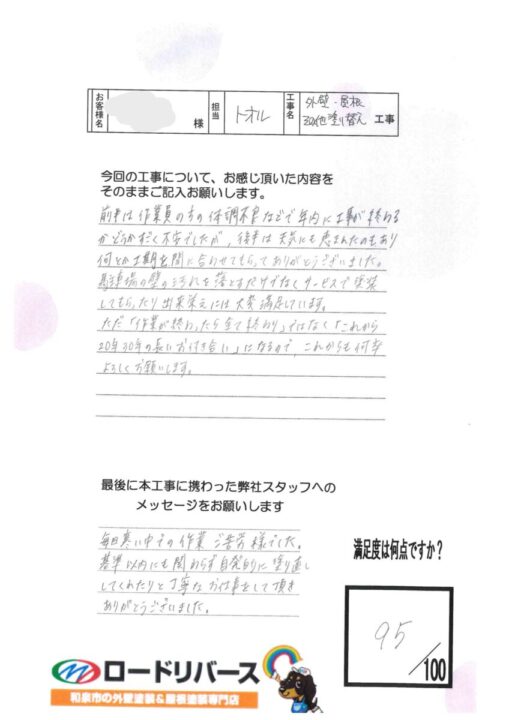 お客様名 様 担当 トオル 工事名 外壁・屋根
その他塗り替え 工事
今回の工事について、お感じ頂いた内容を
そのままご記入お願いします。
前半は作業員の方の体調不良などで年内に工事が終わる
かどうかすごく不安でしたが、後半は天気にも恵まれたのもあり
何とか工期を間に合わせてもらってありがとうございました。
駐車場の壁の汚れを落とすだけでなくサービスで塗装
してもらったり出来栄えには大変満足しています。
ただ「作業が終わったら全て終わり」ではなく「これから
20年30年の長いお付き合い」になるので、これからも何卒
よろしくお願いします。
最後に本工事に携わった弊社スタッフへの
メッセージをお願いします
毎日寒い中での作業ご苦労様でした。
基準以内にも関わらず自発的に塗り直し
してくれたりと丁寧なお仕事をして頂き
ありがとうございました。
満足度は何点ですか?
95/100
ロードリバース
和泉市の外壁塗装&屋根塗装専門店